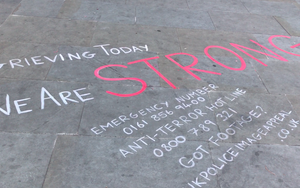 GRIEVING TODAY
WE ARE STRONG
EMERGENCY NUMBER
0161 856 9400
ANTI-TERROR HOTLINE
0800 789 321
GOT FOOTAGE?
UKPOLICEIMAGEAPPEAL.
CO.UK